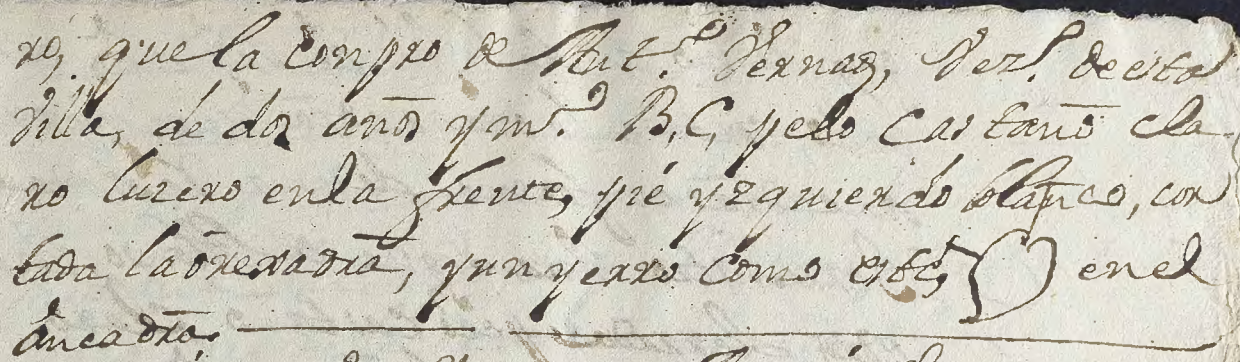 re, que la conpro de Ant.º Vernaz, Vez.º de esta
Villa, de dos años y m.º B, C, pelo Castaño cla-
ro luzero en la frente, pie yzquierdo blanco, cor
tada la orexa dra, y un yerro como este, en el
anca dra.